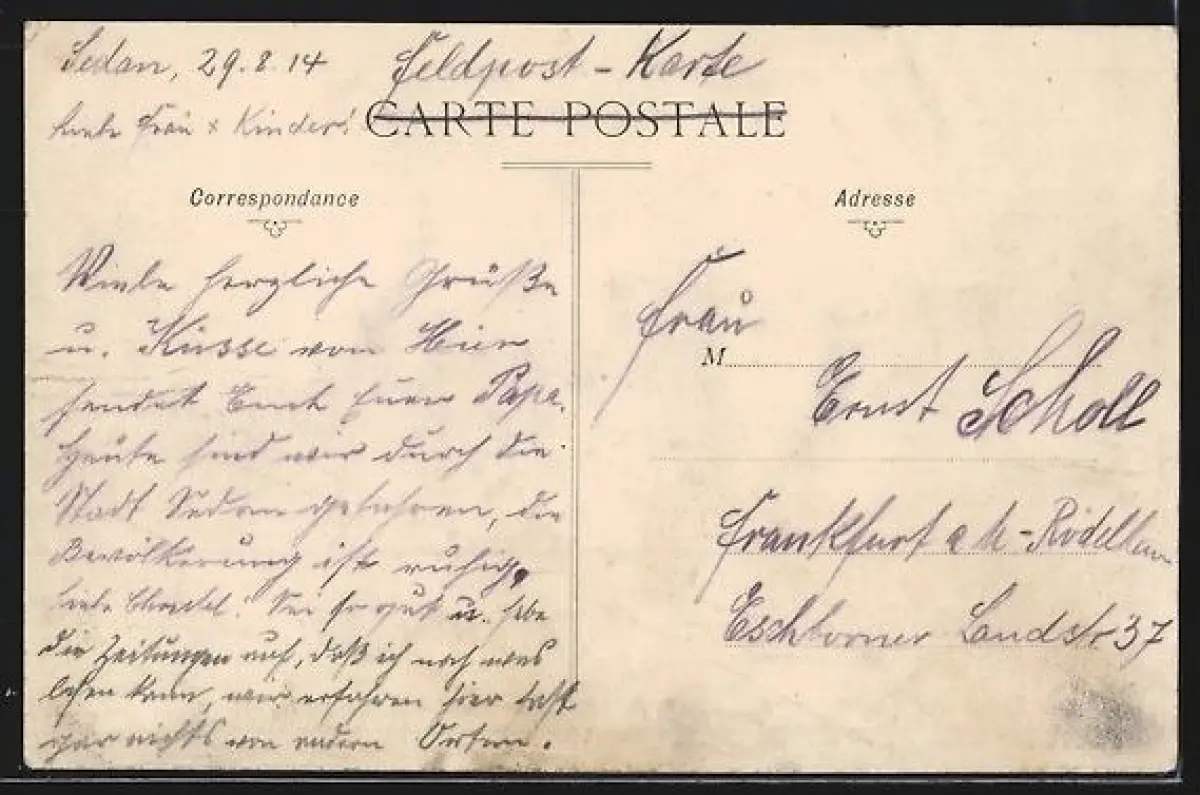 Sedan, 29.8.14
Feldpost-Karte
Liebe Frau + Kinder!
CARTE POSTALE
Correspondance
Viele herzliche Grüße
u. Küsse von Hier
sendet Euch Euer Papa.
Heute sind wir durch die
Stadt Sedan gefahren, die
Bevölkerung ist ruhig,
liebe Christel! Sei so gut u. hebe
die Zeitungen auf, daß ich noch was
lesen kann, wir erfahren hier fast
gar nichts von andern Orten.
Adresse
Frau
M
Ernst Scholl
Frankfurt a M-Rödelheim
Eschborner Landstr. 37